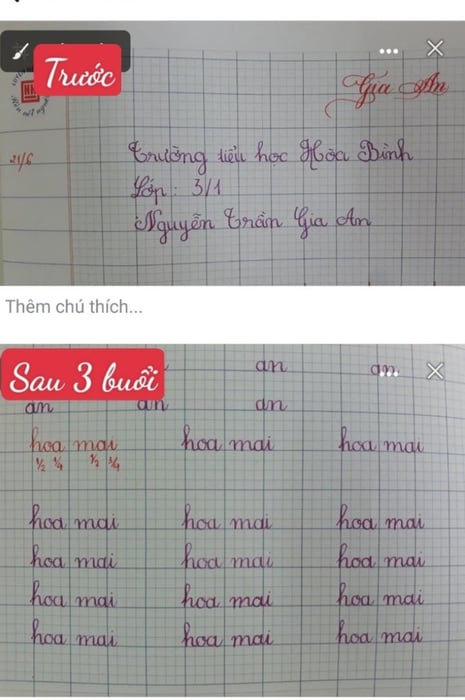 Trước
Gia An
21/6
Trường tiểu học Hòa Bình
Lớp : 3/1
Nguyễn Trần Gia An
Thêm chú thích...
Sau 3 buổi
an an
an an an
hoa mai hoa mai hoa mai
½ ¼ ½ ¾
hoa mai hoa mai hoa mai
hoa mai hoa mai hoa mai
hoa mai hoa mai hoa mai
hoa mai hoa mai hoa mai